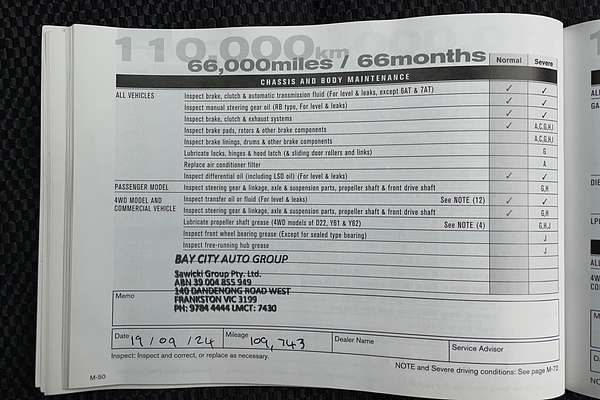 110,000km
66,000miles / 66months
Normal Severe
CHASSIS AND BODY MAINTENANCE
ALL VEHICLES Inspect brake, clutch & automatic transmission fluid (For level & leaks, except 6AT & 7AT) ✓ ✓
Inspect manual steering gear oil (RB type, For level & leaks) ✓ ✓
Inspect brake, clutch & exhaust systems ✓ ✓
Inspect brake pads, rotors & other brake components ✓ A,C,G,H,I
Inspect brake linings, drums & other brake components A,C,G,H,I
Lubricate locks, hinges & hood latch (& sliding door rollers and links) G
Replace air conditioner filter A
Inspect differential oil (including LSD oil) (For level & leaks) ✓ ✓
PASSENGER MODEL Inspect steering gear & linkage, axle & suspension parts, propeller shaft & front drive shaft G,H
4WD MODEL AND COMMERCIAL VEHICLE Inspect transfer oil or fluid (For level & leaks) See NOTE (12) ✓ ✓
Inspect steering gear & linkage, axle & suspension parts, propeller shaft & front drive shaft ✓ G,H
Lubricate propeller shaft grease (4WD models of D22, Y61 & Y62) See NOTE (4) G,H,J
Inspect front wheel bearing grease (Except for sealed type bearing) J
Inspect free-running hub grease J
BAY CITY AUTO GROUP
Sawicki Group Pty. Ltd.
ABN 39 004 855 949
140 DANDENONG ROAD WEST
FRANKSTON VIC 3199
PH: 9784 4444 LMCT: 7430
Memo
Date 19/09/24 Mileage 109,743 Dealer Name Service Advisor
Inspect: Inspect and correct, or replace as necessary.
NOTE and Severe driving conditions: See page M-72
M-50